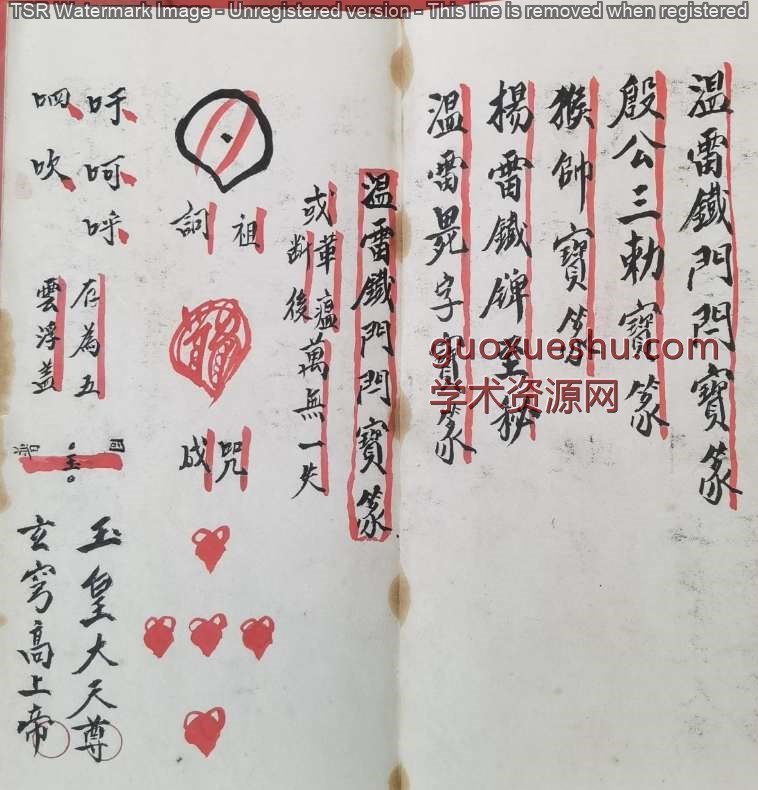 TSR Watermark Image - Unregistered version - This line is removed when registered
溫雷鐵門閂寶篆
殷公三勅寶篆
猴帥寶篆
楊雷鐵牌至秘
溫雷晁字寶篆
guoxueshu.com
学术资源网
溫雷鐵門閂寶篆
或革瘟萬無一失
断後
祖詞
咒成
吁呵呼
呬吹
存為五
雲浮蓋
玉
玉皇大天尊
玄穹高上帝